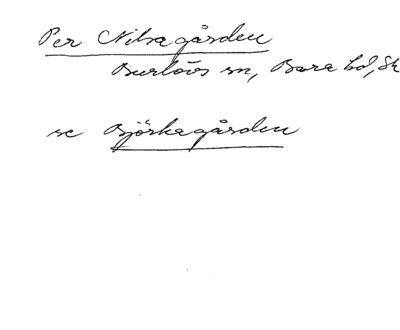 Per Nilsagården
Burlövs sn, Bara hd, Sk
se Björkagården